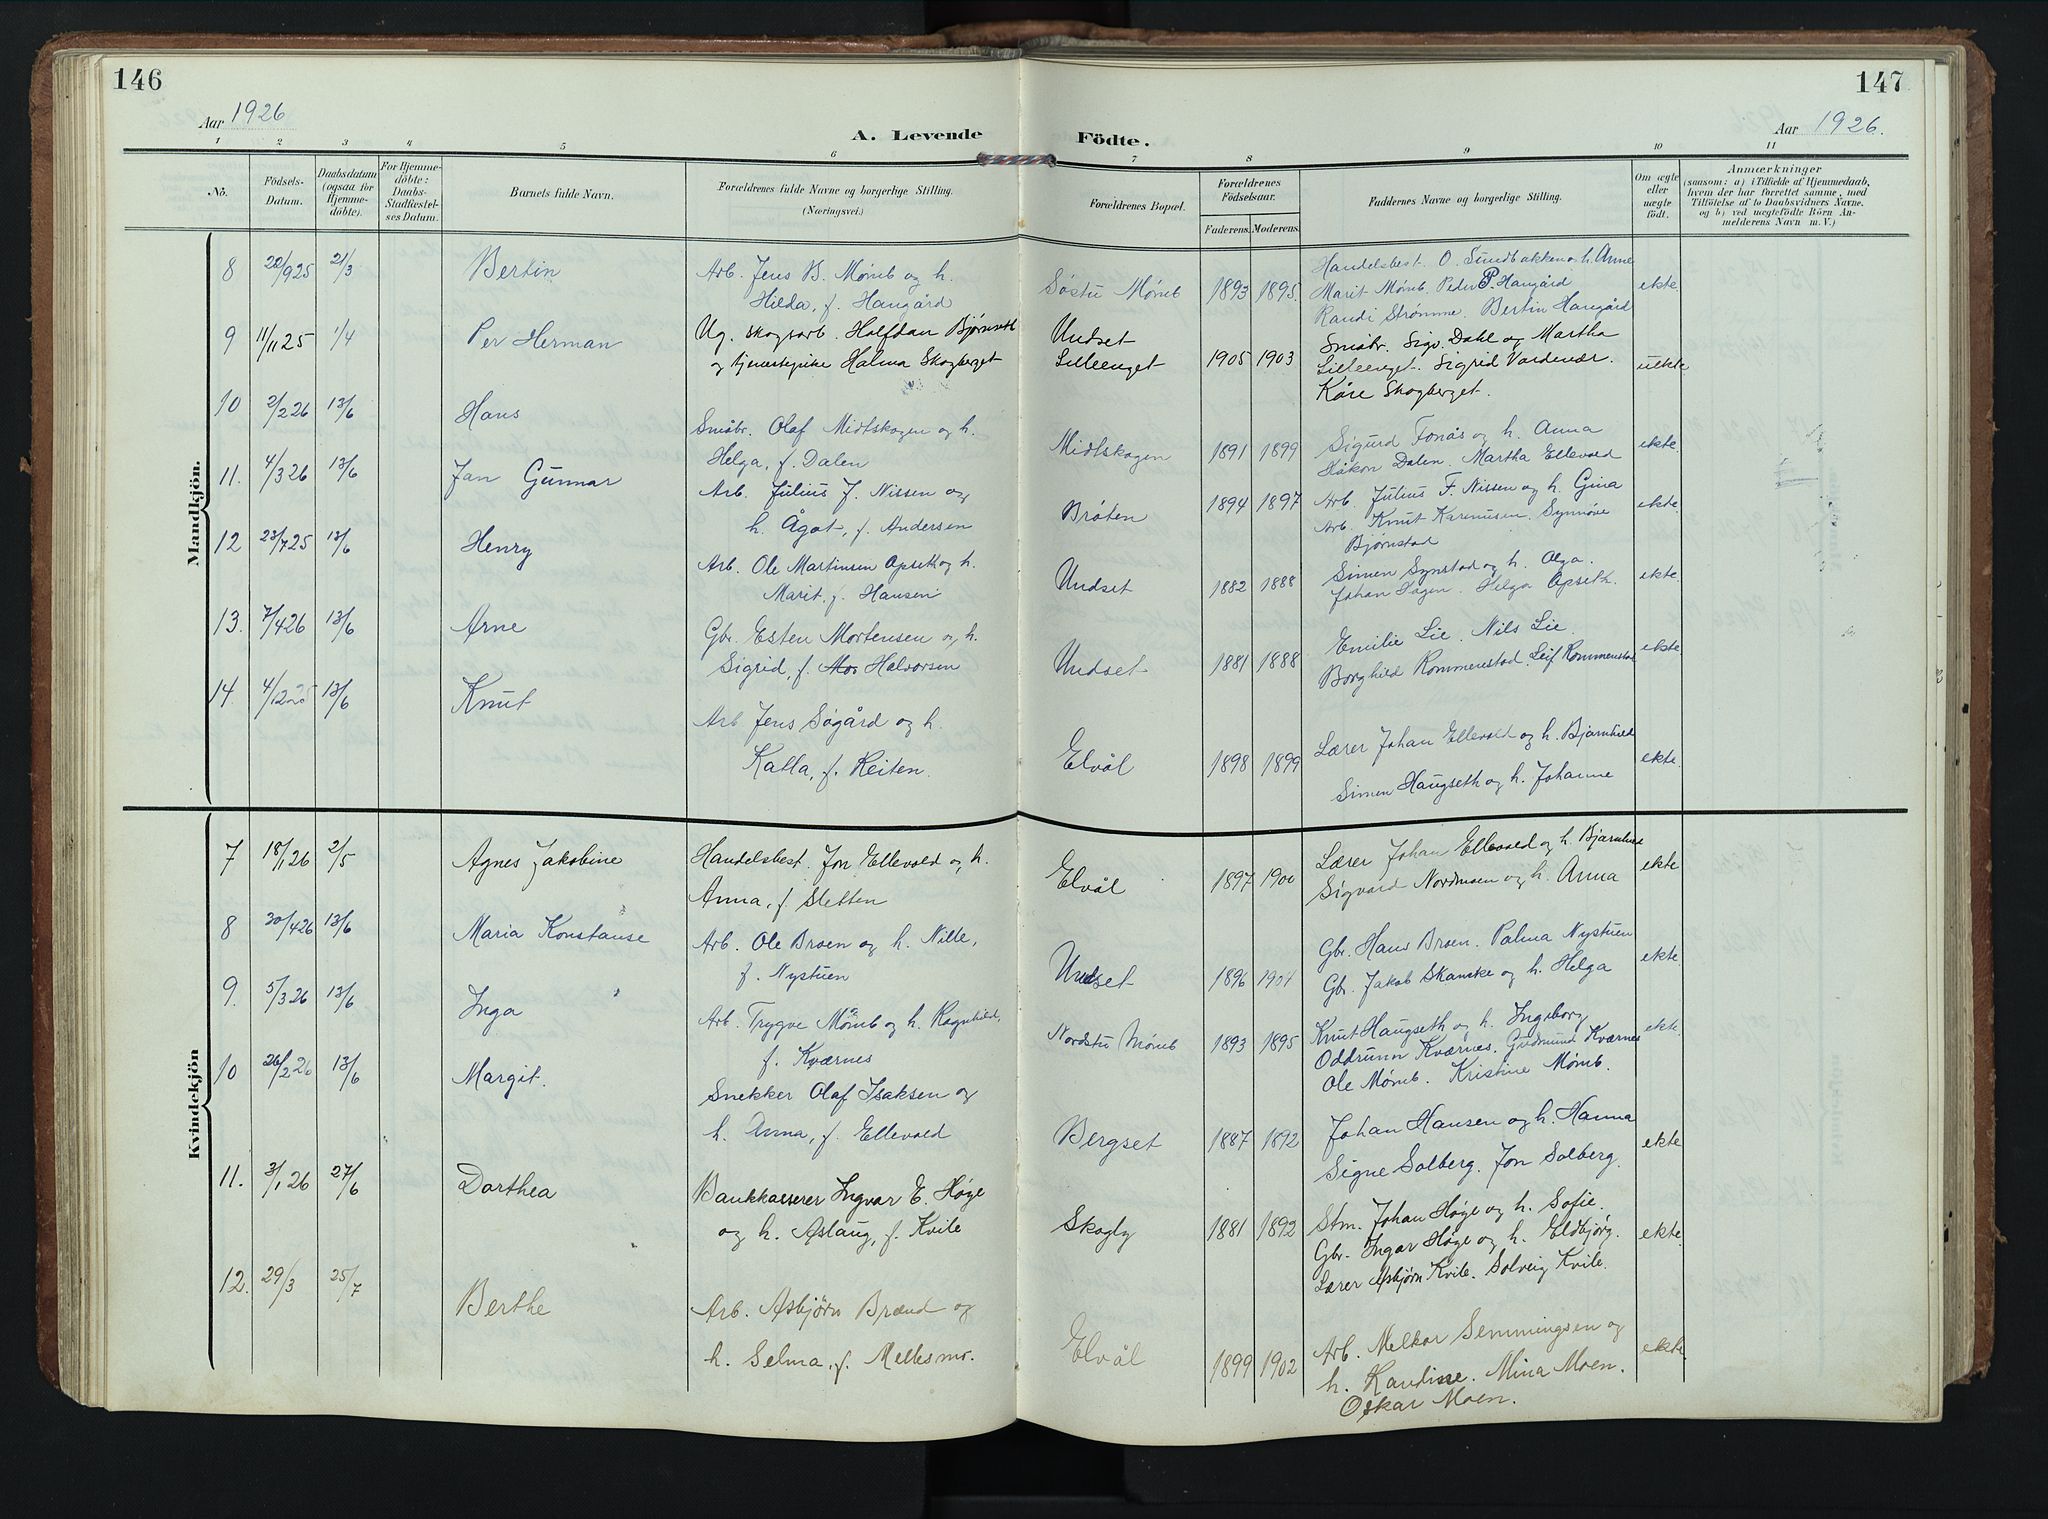 146
147
Aar 1926
A. Levende Födte.
Aar 1926.
1 2 3 4 5 6 7 8 9 10 11
No.
Födsels-Datum.
Daabsdatum (ogsaa for Hjemme-döbte).
For Hjemme-döbte: Daabs-Stadfæstel-ses Datum.
Barnets fulde Navn.
Forældrenes fulde Navne og borgerlige Stilling.
(Næringsvei.)
Forældrenes Bopæl.
Forældrenes Födselsaar.
Faderens. Moderens.
Faddernes Navne og borgerlige Stilling.
Om ægte eller uægte födt.
Anmærkninger
(saasom: a) i Tilfælde af Hjemmedaab, hvem der har forrettet samme, med Tilföielse af to Daabsvidners Navne, og b) ved uægtefödte Börn An-melderens Navn m. V.)
Mandkjön.
8 20/9 25 21/3 Bertin Arb. Jens B. Mømb og h. Hilda, f. Haugård Søstu Mømb 1893 1895 Handelsbest. O. Sundbakken og h. Anne
Marit Mømb. Peder P. Haugård
Randi Strømme. Bertin Haugård ekte
9 11/11 25 1/4 Per Herman Ug. skogsarb. Halfdan
og tjenestepike Halma Skogberget Undset
Lilleenget 1905 1903 Småbr. Sigv. Dahl og Martha
Lilleenget. Sigrid Vardenær.
Kåre Skogberget. uekte
10 2/2 26 13/6 Hans Småbr. Olaf Midtskogen og h.
Helga, f. Dalen Midtskogen 1891 1899 Sigurd Fonås og h. Anna
Håkon Dalen. Martha Ellevold ekte.
11. 4/3 26 13/6 Jan Gunnar Arb. Julius J. Nissen og
h. Ågot, f. Andersen Bråten 1894 1897 Arb. Julius F. Nissen og h. Gina
Arb. Knut Karenusen. Synnøve
Bjørnstad ekte.
12 23/7 25 13/6 Henry Arb. Ole Martinsen Opseth og h.
Marit, f. Hansen Undset 1882 1888 Simen Synstad og h. Olga.
Johan Hagen. Helga Opseth. ekte.
13. 7/4 26 13/6 Arne Gbr. Esten Mortensen og h.
Sigrid, f. Mor Halvorsen Undset 1881 1888 Emilie Lie. Nils Lie.
Borghild Rommenstad. Leif Rommenstad ekte.
14. 4/12 25 13/6 Knut Arb. Jens Søgård og h.
Kalla, f. Reiten. Elvål 1898 1899 Lærer Johan Ellevold og h. Bjarnhild
Simen Haugseth og h. Johanne ekte.
Kvindekjön
7 18/1 26 2/5 Agnes Jakobine Handelsbest. Jon Ellevold og h.
Anna, f. Sletten Elvål 1897 1900 Lærer Johan Ellevold og h. Bjarnhild
Sigvard Nordmoen og h. Anna ekte
8 30/4 26 13/6 Maria Konstanse Arb. Ole Broen og h. Nille,
f. Nystuen Undset 1896 1904 Gbr. Hans Broen. Palma Nystuen
Gbr. Jakob Skanske og h. Helga ekte.
9. 5/3 26 13/6 Inga Arb. Trygve Mømb og h. Ragnhild,
f. Kværnes Nordstu Mømb 1893 1895 Knut Haugseth og h. Ingeborg
Oddrunn Kværnes. Gudmund Kværnes
Ole Mømb. Kristine Mømb. ekte.
10 26/2 26 13/6 Margit. Snekker Olaf Isaksen og
h. Anna, f. Ellevold Bergset 1887 1892 Johan Hansen og h. Hanna
Signe Solberg. Jon Solberg. ekte
11. 3/1 26 27/6 Dorthea Bankkasserer Ingvar E. Høye
og h. Aslaug, f. Kvile Skogly 1881 1892 Stm. Johan Høye og h. Sofie.
Gbr. Ingar Høye og h. Eldbjørg.
Lærer Asbjørn Kvile. Solveig Kvile. ekte.
12. 29/3 25/7 Berthe Arb. Asbjørn Brænd og
h. Selma, f. Mellesmo. Elvål 1899 1902 Arb. Melkor Semmingsen og
h. Kandine. Mina Moen.
Oskar Moen. ekte.